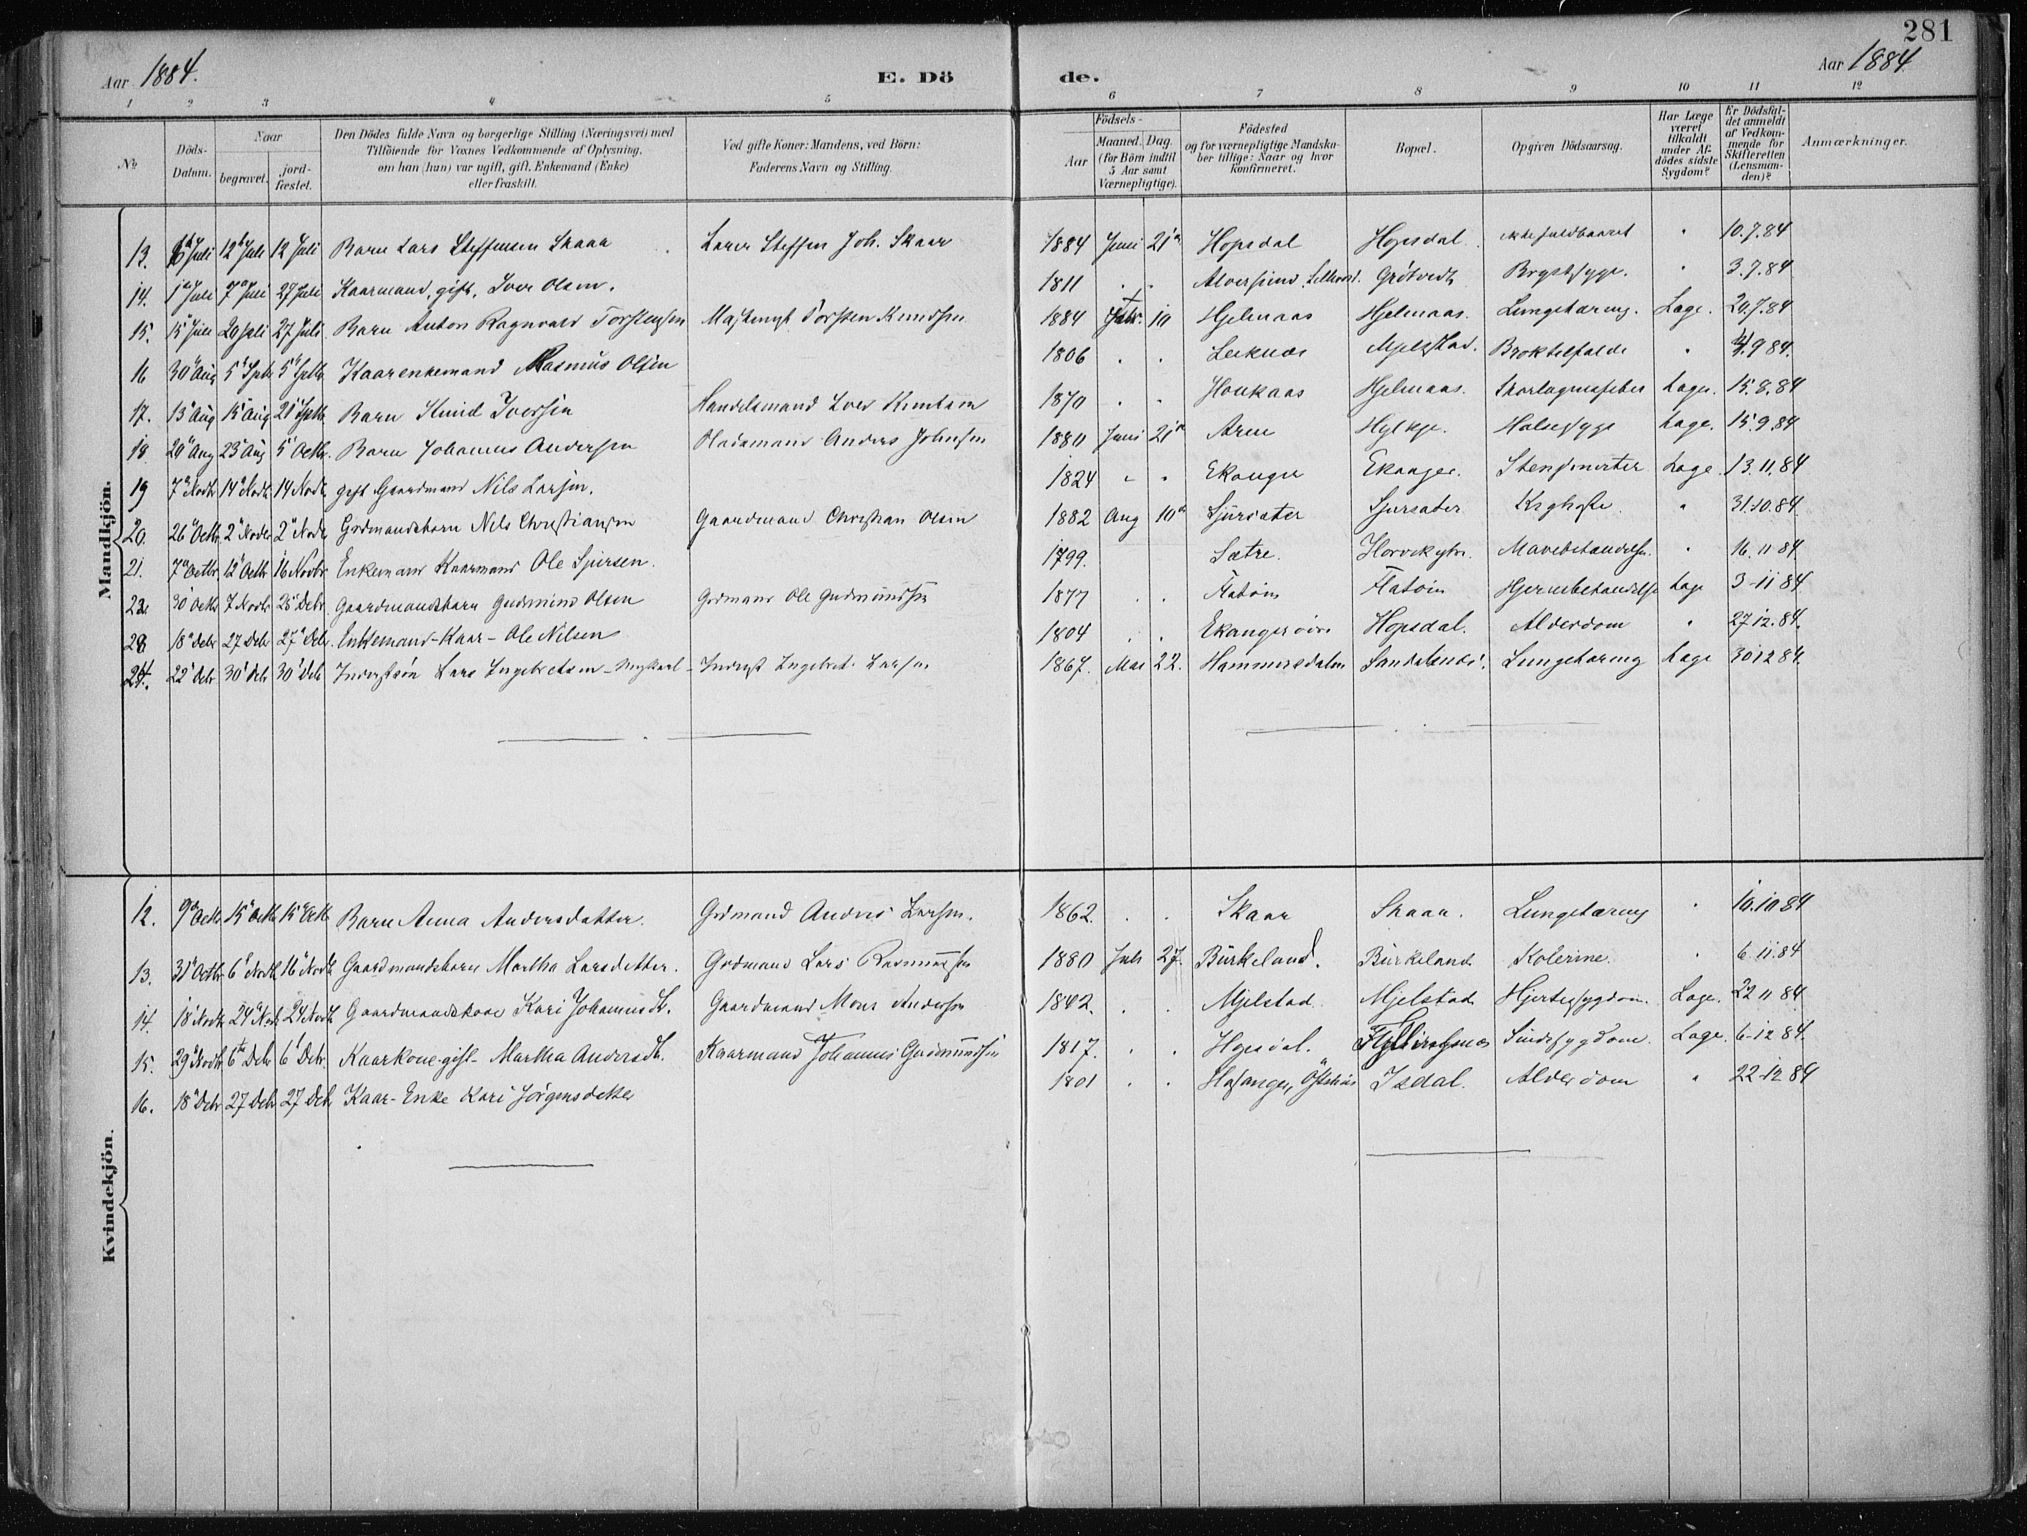 281
Aar 1884.
E. Dö de.
Aar 1884
1 2 3 4 5 6 7 8 9 10 11 12
№
Döds-Datum.
Naar
begravet.
jord-fæstet.
Den Dödes fulde Navn og borgerlige Stilling (Næringsvei) med
Tilföiende for Voxnes Vedkommende af Oplysning,
om han (hun) var ugift, gift, Enkemand (Enke)
eller fraskilt.
Ved gifte Koner: Mandens, ved Börn:
Faderens Navn og Stilling.
Födsels-
Aar
Maaned. Dag.
(for Börn indtil
5 Aar samt
Værnepligtige).
Födested
og for værnepligtige Mandska-
ber tillige: Naar og hvor
konfirmeret.
Bopæl.
Opgiven Dödsaarsag.
Har Læge
været
tilkaldt
under Af-
dödes sidste
Sygdom?
Er Dödsfal-
det anmeldt
af Vedkom-
mende for
Skifteretten
(Lensman-
den)?
Anmærkninger.
Mandkjön.
13. 6 Juli 12 Juli 12 Juli Barn Lars Steffensen Skaar Lærer Steffen Joh. Skaar 1884 Juni 21 Hopsdal Hopsdal 10.7.84
14. 1 Juli 7 Juli 27 Juli Kaarmand, gift, Iver Olsen. 1811 Grötvedt Brystsyge. 3.7.84
15. 15 Juli 20 Juli 27 Juli Barn Anton Ragnvald Torstensen Torsten Knudsen 1884 10 Hjelmaas Hjelmaas. Lungetæring. Læge. 20.7.84
16 30 Aug 5 Sptb 5 Sptb Kaarenkemand Rasmus Olsen 1806 Leiknes Mjelstad. 9 84.
17. 13 Aug 15 Aug 21 Sptb Barn Iversen Handelsmand Iver Knutsen 1870 Houkaas Hjelmaas. Skarlagensfeber Læge. 15.8.84
18. 20 Aug 23 Aug 5 Octb. Barn Johannes Andersen Anders Johnsen 1880 Juni 21 Hylkje. Halssyge Læge. 15.9.84
19 7 Novb 14 Novb. 14 Novb. gift Gaardmand Nils Larsen. 1824 Ekanger Ekanger. Læge. 13.11.84
20. 26 Octb. 2 Novbr 2 Novb Grdmandsbarn Nils Christiansen Gaardmand Christian Olsen 1882 Aug 10 Sjursæter Sjursæter Kighoste. 31.10.84.
21. 7 Octbr. 12 Octbr 16 Novbr Enkemand Kaarmand Ole Sjursen. 1799. Sætre. 16.11 84.
22. 30 Octb 7 Novbr 26 Debr Gaardmandsbarn Gudmund Olsen Grdmand Ole Gudmundsen 1877 Flatöen Flatöen Læge 3-11 84
23 18 Debr 27 Debr 27 Debr. Enkemand-Kaar- Ole Nilsen 1804 Hopsdal. Alderdom 27.12.84.
24. 22 Debr 30 Debr 30 Deb Inderstsön Lars Engebretsen Inderst Engebret Larsen 1867. Mai 22. Hammersdalen Lungetæring Læge 30 12 84.
Kvindekjön.
12. 9 Octb. 15 Octb 15 Octb. Barn Anna Andersdatter. Grdmand Anders Larsen. 1862. Skaar Skaar. Lungetæring 10.10 84
13. 31 Octbr 6 Novb 16 Novb Gaardmandsbarn Martha Larsdatter. Grdmand Lars Rasmussen 1880 Juli 27. Birkeland. Birkeland Kolerine. 6-11.84
14. 18 Novb 24 Novb 24 Novb Gaardmandskone Kari Johannesd. Gaardmand Mons Andersen 1842. Mjelstad. Mjelstad Hjertesygdom. Læge. 22 11 84.
15. 29 Novb 6 Debr 6 Debr. Kaarkone-gift- Martha Andersd. Kaarmand Johannes Gudmundsen 1817. Hopsdal. Læge. 6-12 84.
16. 18 Debr 27 Debr 27 Debr Kaar-Enke Kari Jörgensdatter 1801 Isdal. Alderdom 22-12 84